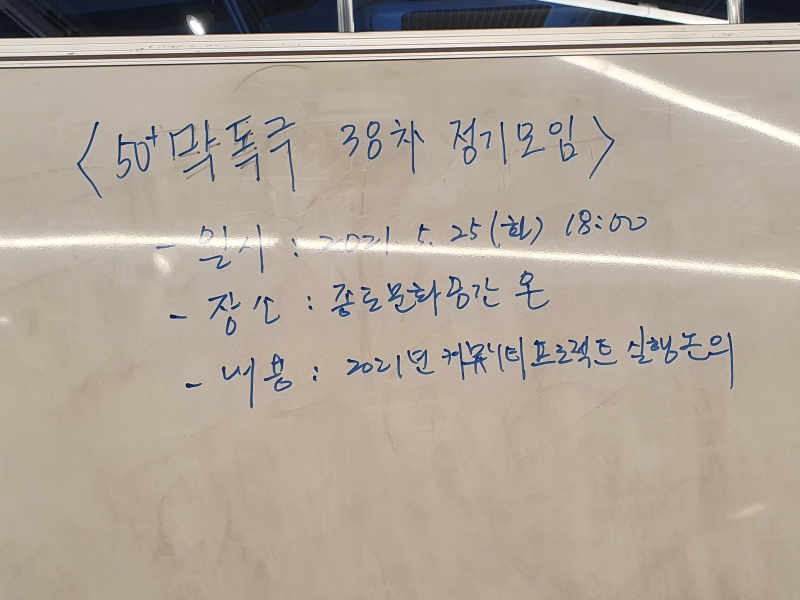 <50+막톡극 38차 정기모임>
- 일시 : 2021. 5. 25(화) 18:00
- 장소 : 종로문화공간 온
- 내용 : 2021년 커뮤니티 프로젝트 실행논의